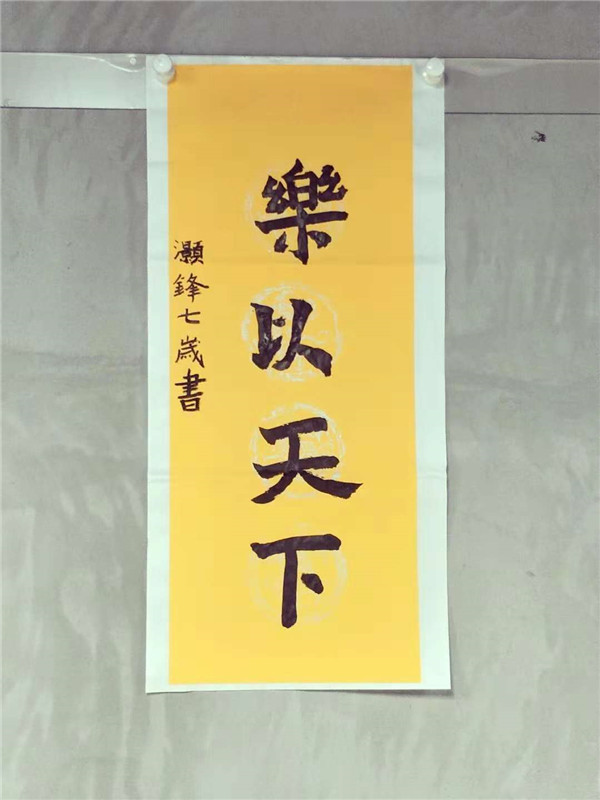 樂以天下
灝鋒七歲書